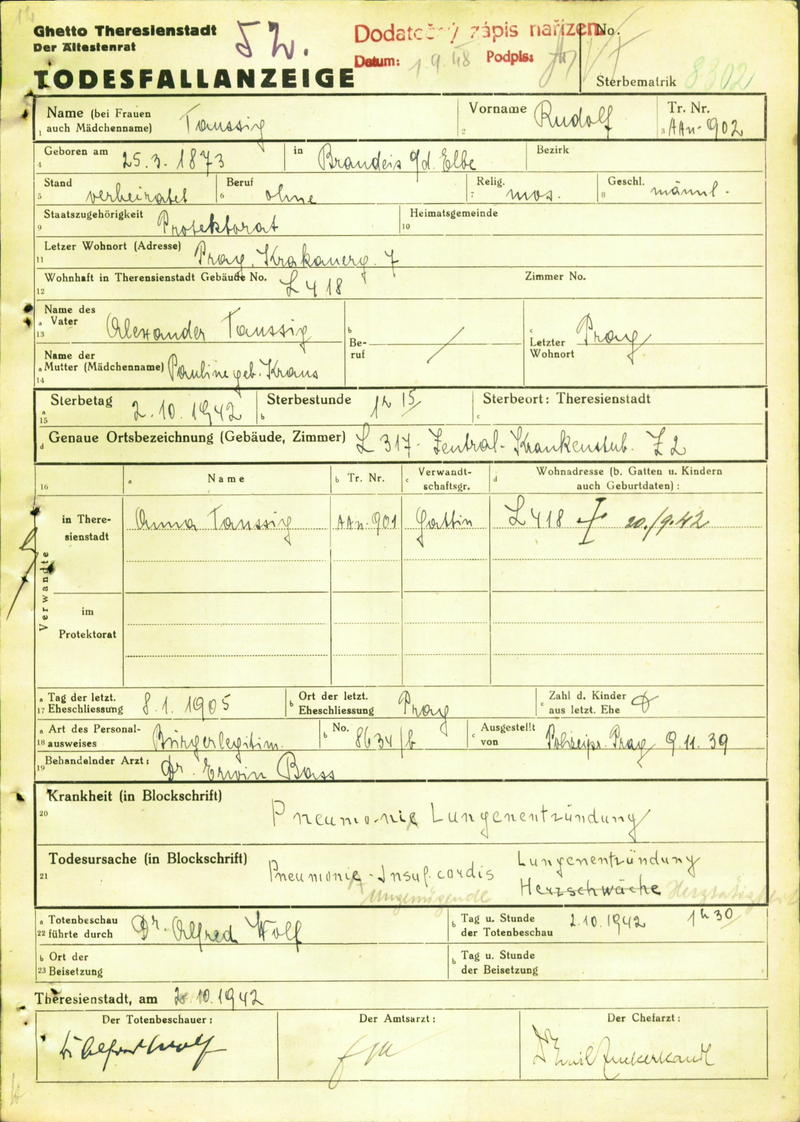 Ghetto Theresienstadt
Der Ältestenrat
52.
Dodatečný zápis nařízen
Datum: 1.9.48 Podpis:
No.
TODESFALLANZEIGE
Sterbematrik 8302
Name (bei Frauen auch Mädchenname) Taussig
Vorname Rudolf
Tr. Nr. AAn-902
Geboren am 25.3.1873 in Brandeis a/d. Elbe Bezirk
Stand verheiratet Beruf ohne Relig. mos. Geschl. männl.
Staatszugehörigkeit Protektorat Heimatsgemeinde
Letzer Wohnort (Adresse) Prag, Krakauerg. 7
Wohnhaft in Therensienstadt Gebäude No. L 418 Zimmer No.
Name des Vater Alexander Taussig Beruf / Letzter Wohnort Prag
Name der Mutter (Mädchenname) Pauline geb. Kraus
Sterbetag 2.10.1942 Sterbestunde 1h 15 Sterbeort: Theresienstadt
Genaue Ortsbezeichnung (Gebäude, Zimmer) L 317 - Zentral-Krankenstub. Z 2
Name Tr. Nr. Verwandtschaftsgr. Wohnadresse (b. Gatten u. Kindern auch Geburtdaten):
Verwandte
in Theresienstadt Anna Taussig AAn-901 Gattin L 418 20./9.42
im Protektorat
Tag der letzt. Eheschliessung 8.1.1905 Ort der letzt. Eheschliessung Prag Zahl d. Kinder aus letzt. Ehe
Art des Personalausweises Bürgerlegitim. No. 8634/b Ausgestellt von Polizeipr. Prag 9.11.39
Behandelnder Arzt: Dr. Erwin Bass
Krankheit (in Blockschrift) Pneumonie Lungenentzündung
Todesursache (in Blockschrift) Pneumonie - Insuf. cordis Lungenentzündung
Herzschwäche
Totenbeschau führte durch Dr. Alfred Wolf Tag u. Stunde der Totenbeschau 2.10.1942 1h 30
Ort der Beisetzung Tag u. Stunde der Beisetzung
Theresienstadt, am 2.10.1942
Der Totenbeschauer: Der Amtsarzt: Der Chefarzt:
Dr Alfred Wolf Dr Emil Zuckerkandl